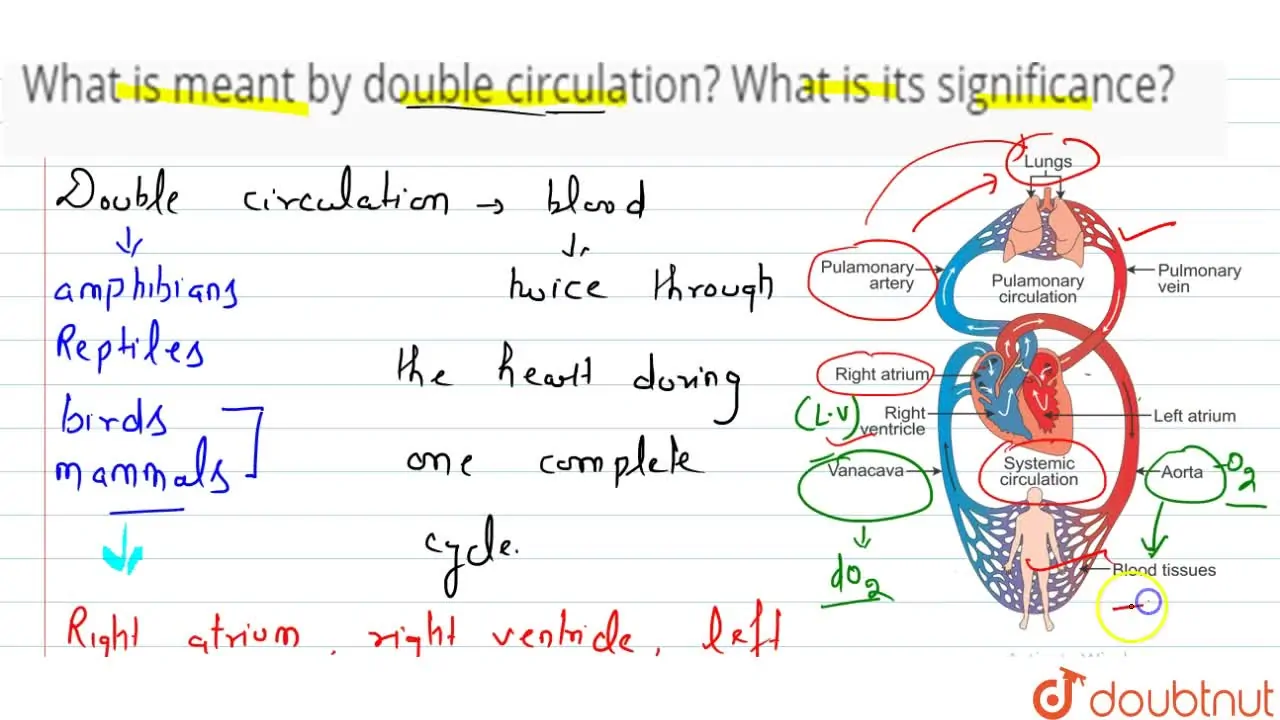 What is meant by double circulation? What is its significance?
Double circulation → blood
amphibians
twice through
Reptiles
the heart during
birds
one complete
mammals
cycle.
Right atrium, right ventricle, left
Lungs
Pulamonary
artery
Pulamonary
circulation
Pulmonary
vein
Right atrium
(L.V)
Right
ventricle
Left atrium
Vanacava
Systemic
circulation
Aorta
O2
dO2
Blood tissues
doubtnut